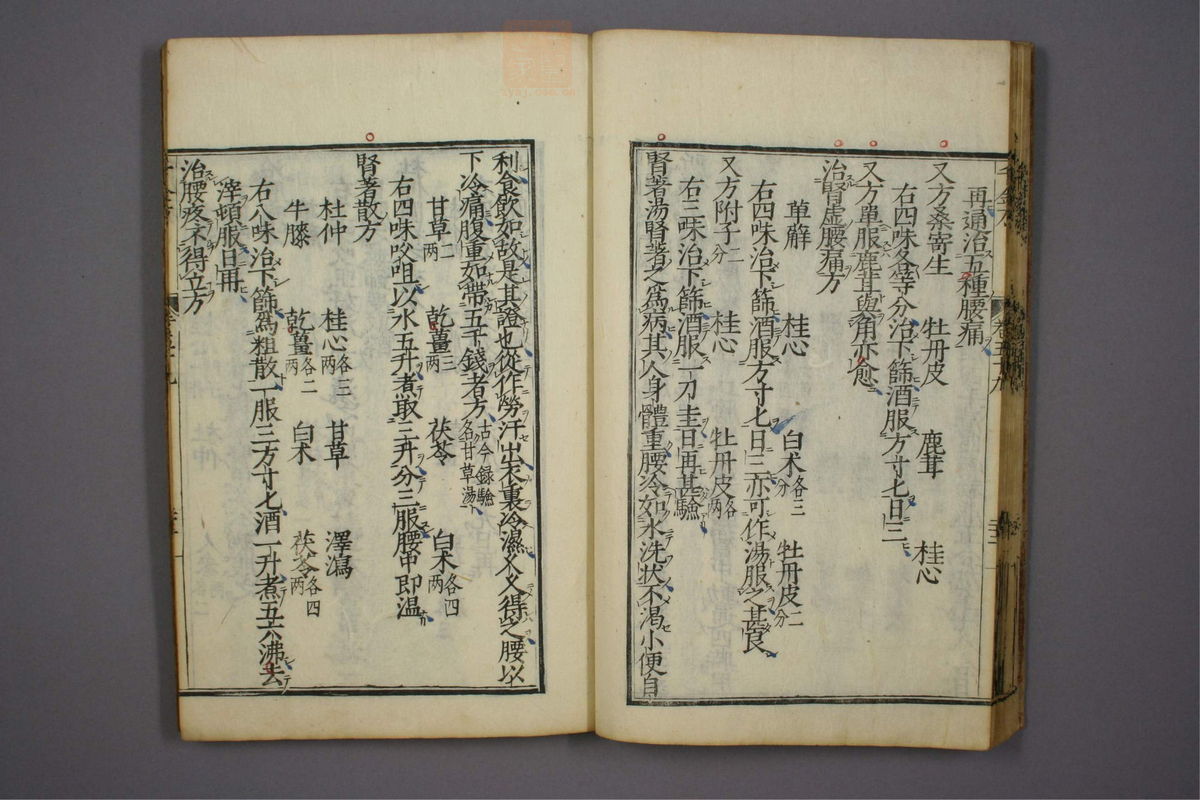 再通治五種腰痛
又方桑寄生 牡丹皮 鹿茸 桂心
右四味各等分治下篩酒服方寸七日三
又方單服鹿茸與角亦愈
治腎虛腰痛方
萆薢 桂心 白朮各三分 牡丹皮二分
右四味治下篩酒服方寸七日三亦可作湯服之甚良
又方附子二分 桂心 牡丹皮各兩
右三味治下篩酒服一刀圭日再甚驗
腎著湯腎著之為病其人身體重腰冷如水洗狀不渴小便自
利食飲如故是其證也從作勞汗出衣裏冷濕久久得之腰以
下冷痛腹重如帶五千錢者方古今錄驗名甘草湯
甘草二兩 乾薑三兩 茯苓 白朮各四兩
右四味㕮咀以水五升煮取三升分三服腰中即温
腎著散方
杜仲 桂心各三兩 甘草 澤瀉
牛膝 乾薑各二兩 白朮 茯苓各四兩
右八味治下篩為粗散一服三方寸七酒一升煮五六沸去
滓頓服日再
治腰疼不得立方